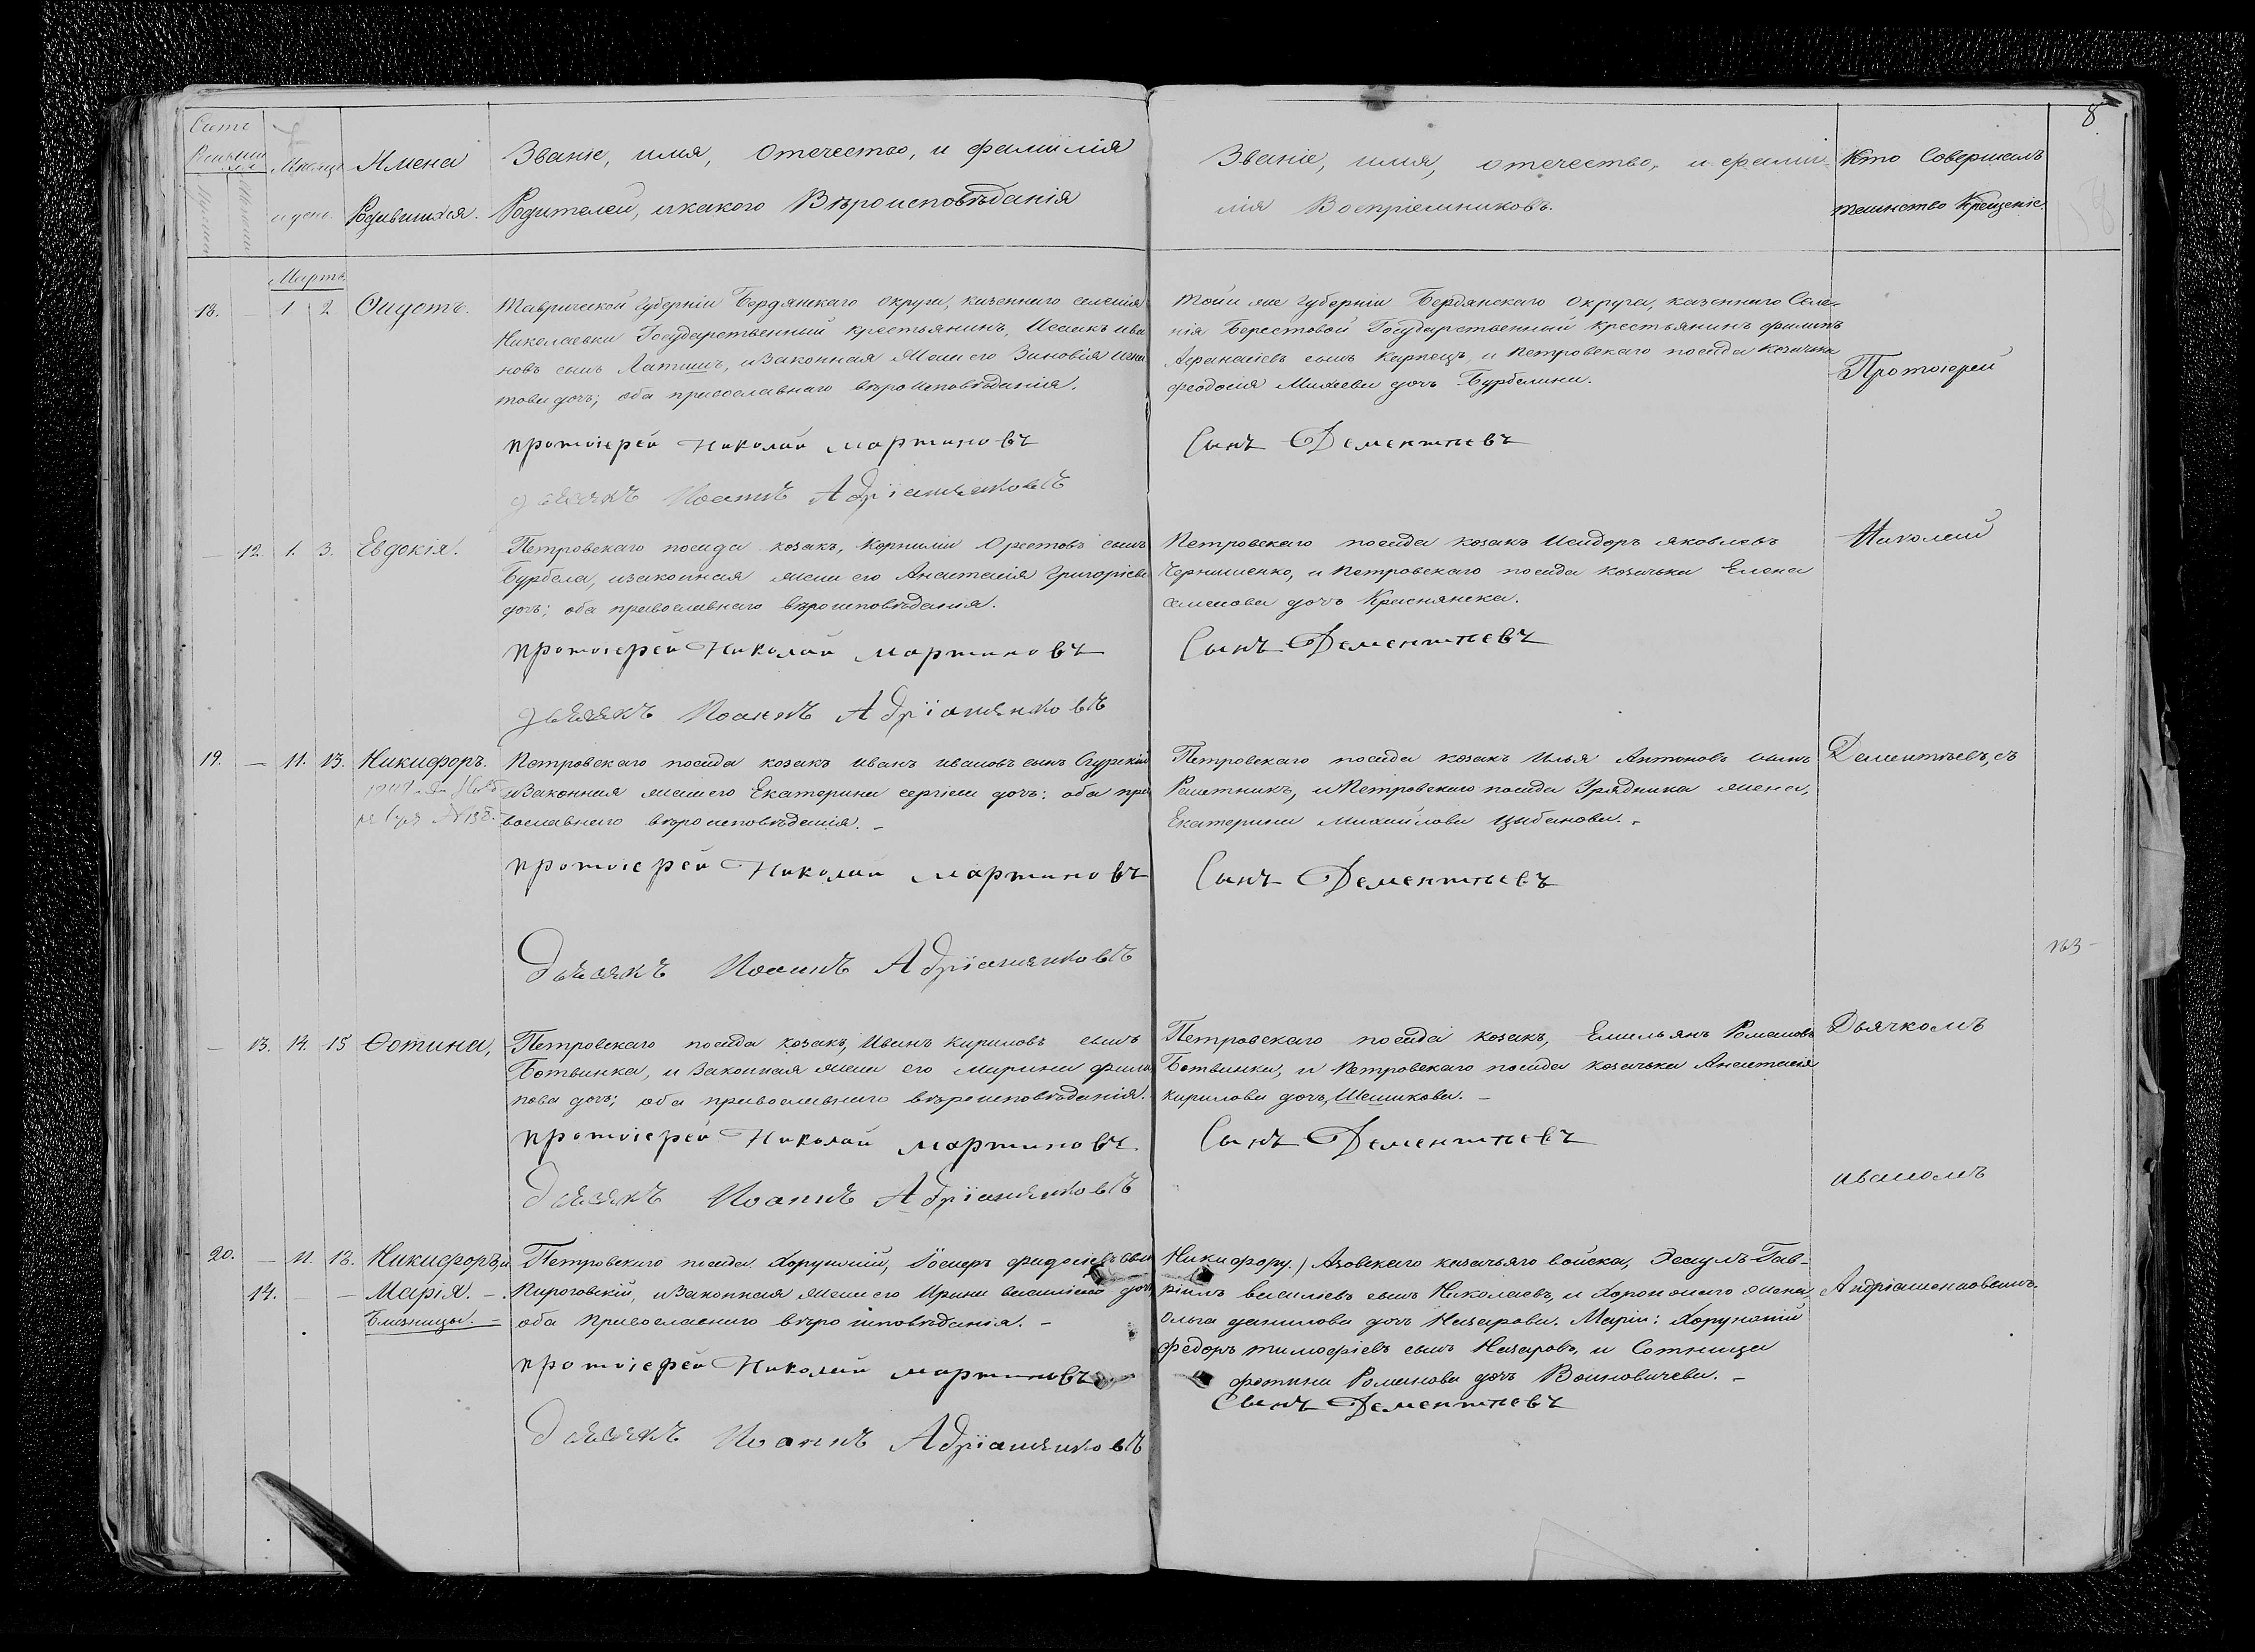 Счетъ
Родившихся
Мѣсяцъ
и день.
Имена
Родившихся.
Званіе, имя, отечество, и фамилія
Родителей, и какого Вѣроисповѣданія
Званіе, имя, отечество, и фами-
лія Воспріемниковъ.
Кто совершалъ
таинство Крещеніе.
8
Мартъ
18. — 1 2 Ѳедотъ.
Таврической Губерніи Бердянскаго округа, казеннаго селенія
Николаевки Государственный крестьянинъ, Исаакъ Ива
новъ сынъ Латышъ, и Законная Жена его Зиновія Игна
това дочь; оба православнаго вѣроисповѣданія.
протоіерей Николай Мартиновъ
дьячокъ Иоаннъ Адріаненковъ
Той же Губерніи Бердянскаго округа, казеннаго Селе-
нія Берестовой Государственный крестьянинъ Филипъ
Афанасіевъ сынъ Карпецъ, и Петровскаго посада козачка
Феодосія Михеева дочь Бурбелина.
Сынъ Дементьевъ
Протоіерей
— 12. 1. 3. Евдокія.
Петровскаго посада козакъ, Корнилій Орестовъ сынъ
Бурбела, и законная жена его Анастасія Григоріева
дочь; оба православнаго вѣроисповѣданія.
протоіерей Николай Мартиновъ
дьячокъ Иоаннъ Адріаненковъ
Петровскаго посада козакъ Исидоръ Яковлевъ
Чернишенко, и Петровскаго посада козачька Елена
Семенова дочь Краснянска.
Сынъ Дементьевъ
Николай
19. — 11. 13. Никифоръ.
Петровскаго посада козакъ Иванъ Ивановъ сынъ Сгурскій
и Законная жена его Екатерина Сергіева дочь: оба пра
вославнаго вѣроисповѣданія. —
протоіерей Николай Мартиновъ
Дьячокъ Иоаннъ Адріаненковъ
Петровскаго посада козакъ Илья Антоновъ сынъ
Решетникъ, и Петровскаго посада Урядника жена,
Екатерина Михайлова Цыбанова. —
Сынъ Дементьевъ
Дементьевъ, съ
163 —
— 13. 14. 15 Фотина,
Петровскаго посада козакъ, Иванъ Кириловъ сынъ
Ботвинка, и Законная жена его Марина Фили
пова дочь; оба православнаго вѣроисповѣданія.
протоіерей Николай Мартиновъ
Дьячокъ Иоаннъ Адріаненковъ
Петровскаго посада козакъ, Емильянъ Романовъ
Ботвинка, и Петровскаго посада козачька Анастасія
Кирилова дочь, Шешикова. —
Сынъ Дементьевъ
Дьячкомъ
Иваномъ
20. — 11. 13. Никифоръ, и
14. — — Марія. —
Близнецы. —
Петровскаго посада Хорунжій, Іосифъ Фадѣевъ сынъ
Пироговскій, и Законная жена его Ирина Василіева дочь
оба Православнаго вѣроисповѣданія. —
протоіерей Николай Мартиновъ
Дьячокъ Иоаннъ Адріаненковъ
Никифору.) Азовскаго казачьяго войска, Эсаулъ Гав-
ріилъ Василіевъ сынъ Николаевъ, и Хорунжаго жена
Ольга Данилова дочь Назарова. Маріи: Хорунжій
Федоръ Тимофіевъ сынъ Назаровъ, и Сотница
Фотина Романова дочь Воиновичева. —
Сынъ Дементьевъ
Андріаненковымъ.